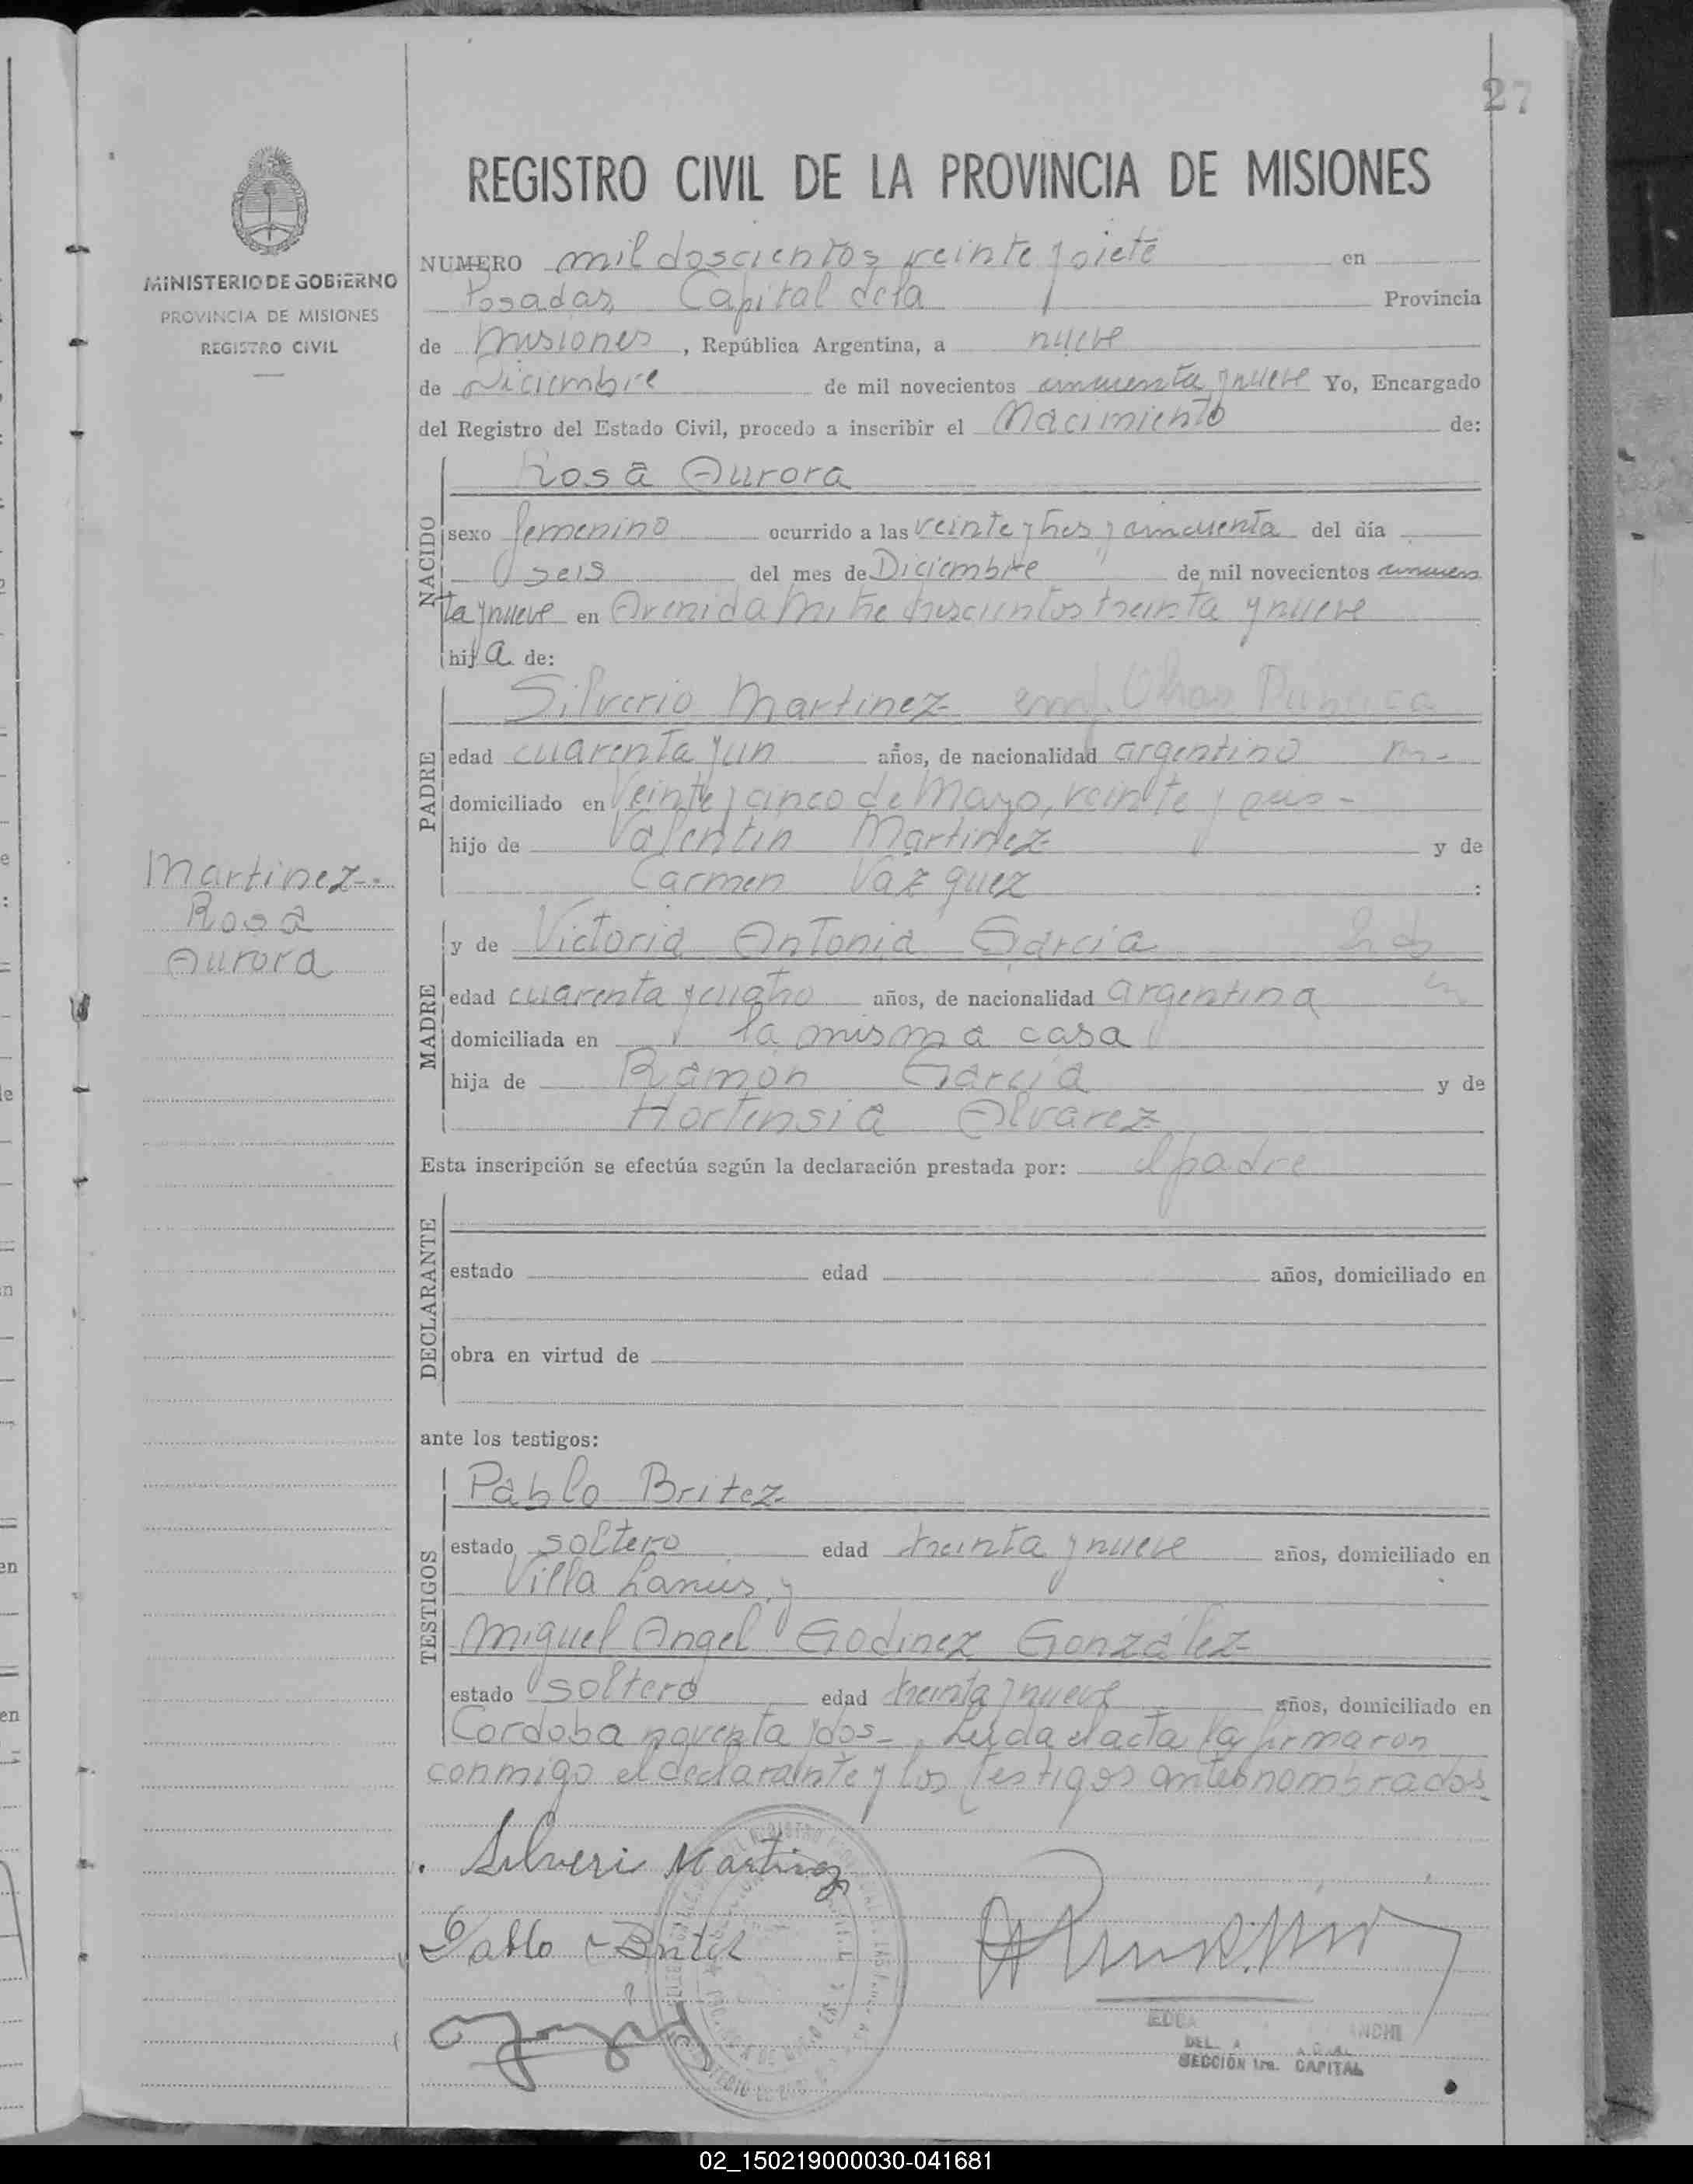 27
REGISTRO CIVIL DE LA PROVINCIA DE MISIONES
MINISTERIO DE GOBIERNO
PROVINCIA DE MISIONES
REGISTRO CIVIL
NUMERO mil doscientos veinte y siete en
Posadas, Capital de la Provincia
de Misiones, República Argentina, a nueve
de Diciembre de mil novecientos cincuenta y nueve Yo, Encargado
del Registro del Estado Civil, procedo a inscribir el Nacimiento de:
NACIDO
Rosa Aurora
sexo femenino ocurrido a las veinte y tres y cincuenta del día
seis del mes de Diciembre de mil novecientos cincuen
ta y nueve en Avenida Mitre trescientos treinta y nueve
hija de:
PADRE
Silverio Martinez emp. Obras
edad cuarenta y un años, de nacionalidad argentino
domiciliado en Veinte y cinco de Mayo, veinte y
hijo de Valentin Martinez y de
Carmen Vazquez :
Martinez
Rosa
Aurora
MADRE
y de Victoria Antonia Garcia
edad cuarenta y cuatro años, de nacionalidad argentina
domiciliada en la misma casa
hija de Ramón Garcia y de
Hortensia Alvarez
Esta inscripción se efectúa según la declaración prestada por: el padre
DECLARANTE
estado edad años, domiciliado en
obra en virtud de
ante los testigos:
TESTIGOS
Pablo Britez
estado soltero edad treinta y nueve años, domiciliado en
Villa Lanús y
Miguel Angel Godinez González
estado soltero edad treinta y nueve años, domiciliado en
Cordoba noventa y dos-. Leida el acta la firmaron
conmigo el declarante y los testigos antes nombrados
Silveri Martinez
Pablo Britez
SECCIÓN 1ra. CAPITAL
02_150219000030-041681